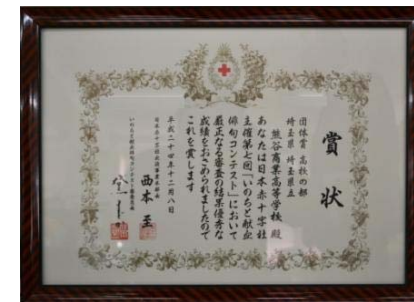 賞状
団体賞 高校の部
埼玉県 埼玉県立
熊谷商業高等学校 殿
あなたは日本赤十字社
主催第七回「いのちと献血
俳句コンテスト」において
厳正なる審査の結果優秀な
成績をおさめられましたので
これを賞します
平成二十四年十二月八日
日本赤十字社
西本 至
いのちと献血俳句コンテスト